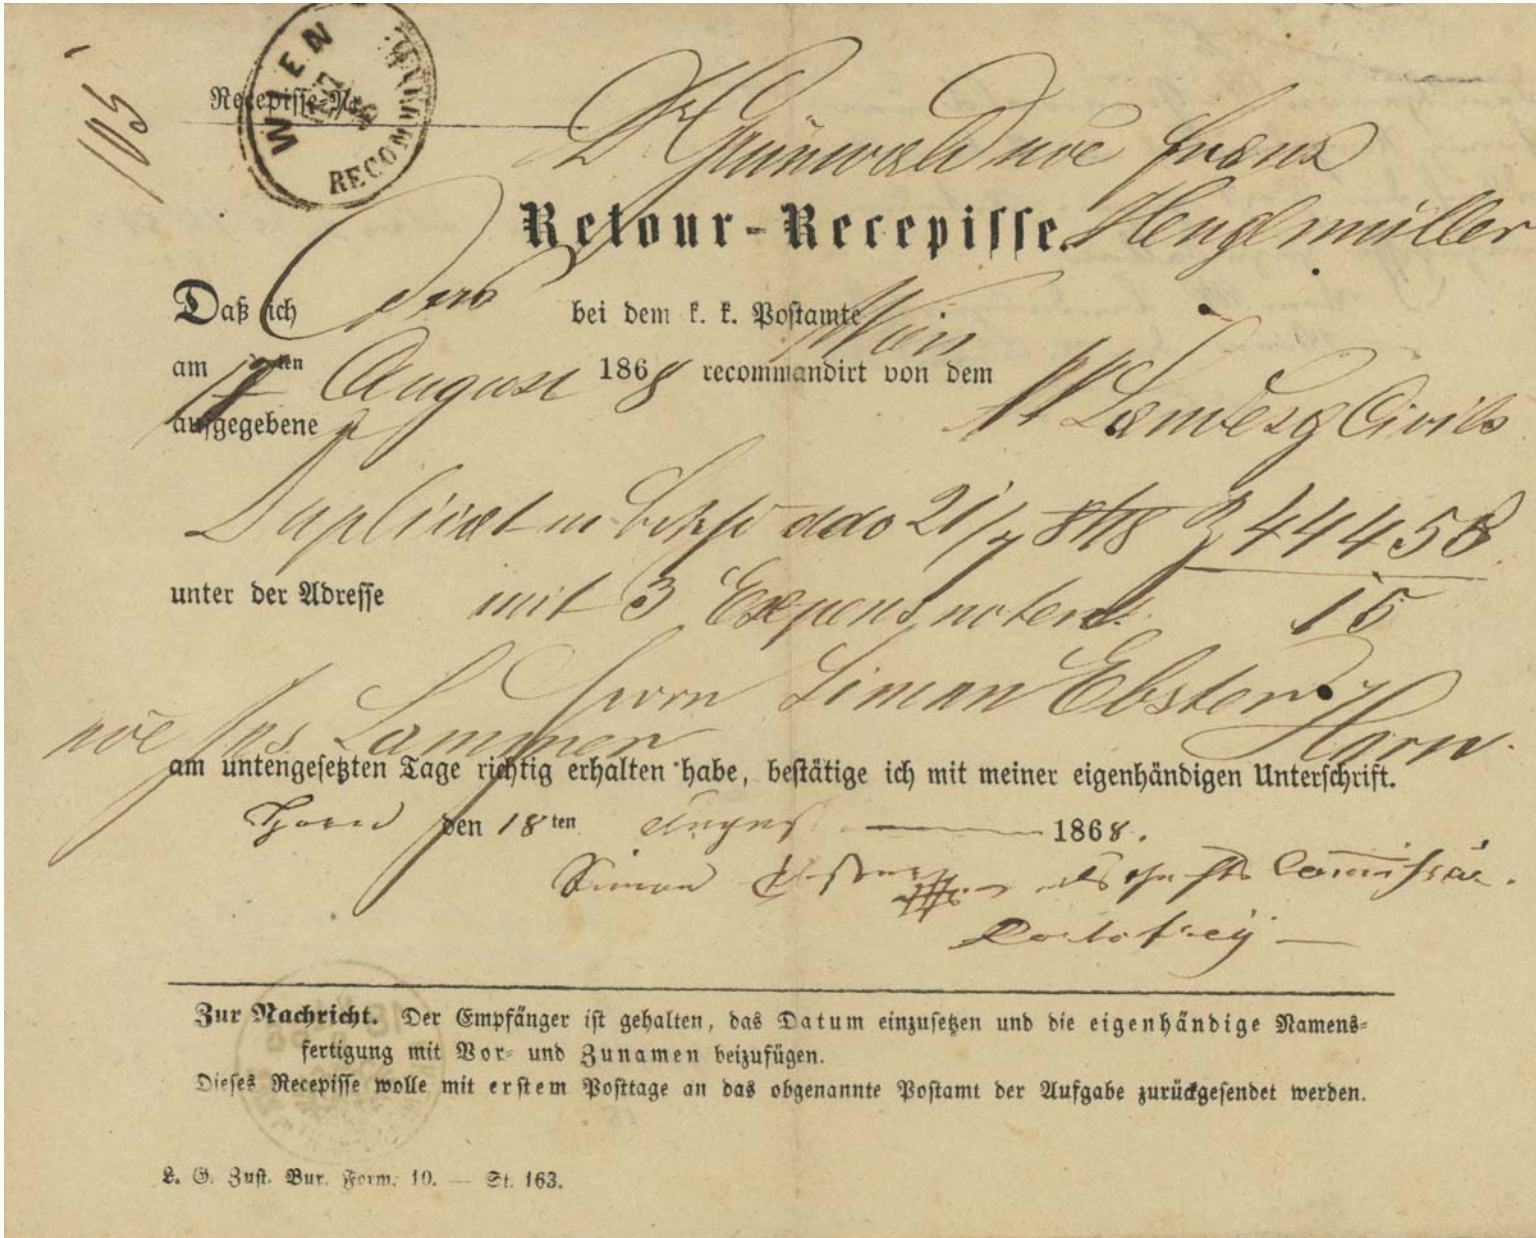 105
WIEN
RECOMMAND
Recepisse-Nr.
Dr Grünwald noe Franz
Retour-Recepisse. Henglmüller
Daß ich das bei dem k. k. Postamte Wien
am 17ten August 1868 recommandirt von dem kk Landesg Civils
aufgegebene
Duplicat m Beschd ddo 21/7 868 Z 44458
unter der Adresse mit 3 Expensnoten 15
Herrn Simon Ebster Horn.
noe Jos. Lammer
am untengesetzten Tage richtig erhalten habe, bestätige ich mit meiner eigenhändigen Unterschrift.
Horn den 18ten August 1868.
Simon Ebster als Commissär.
Portofreÿ
Zur Nachricht. Der Empfänger ist gehalten, das Datum einzusetzen und die eigenhändige Namens-
fertigung mit Vor- und Zunamen beizufügen.
Dieses Recepisse wolle mit erstem Posttage an das obgenannte Postamt der Aufgabe zurückgesendet werden.
L. G. Zust. Bur. Form. 10. — St. 163.